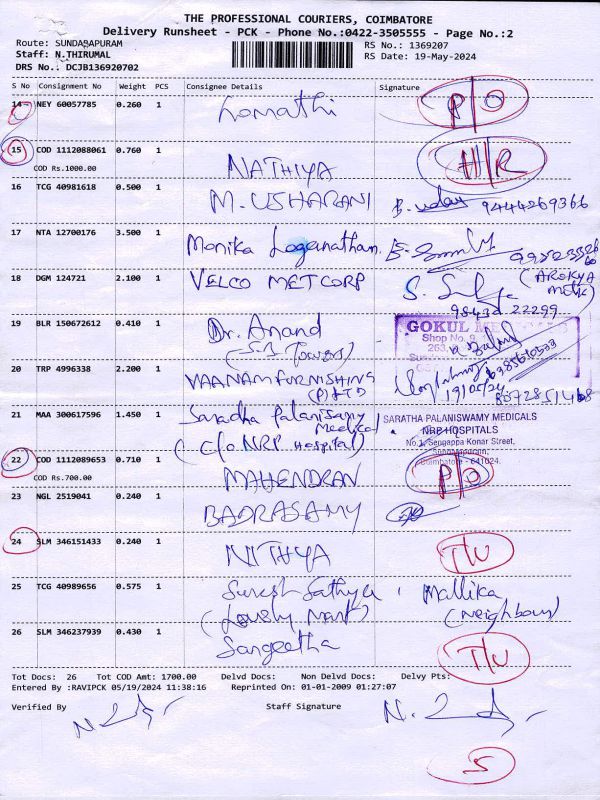 THE PROFESSIONAL COURIERS, COIMBATORE
Delivery Runsheet - PCK - Phone No.:0422-3505555 - Page No.:2
Route: SUNDARAPURAM RS No.: 1369207
Staff: N.THIRUMAL RS Date: 19-May-2024
DRS No.: DCJB136920702
S No Consignment No Weight PCS Consignee Details Signature
14 NEY 60057785 0.260 1 Lomathi P/O
15 COD 1112088061 0.760 1 NATHIYA H/R
COD Rs.1000.00
16 TCG 40981618 0.500 1 M. USHARANI 9444269366
17 NTA 12700176 3.500 1 Monika Loganathan
18 DGM 124721 2.100 1 VELCO METCORP S.
(AROKYA
98432 22299
19 BLR 150672612 0.410 1 Dr. Anand
(S.J. Towers)
GOKUL
Shop No. 9
263,
20 TRP 4996338 2.200 1 VAANAM FURNISHING
(P) LTD
19/05/24
21 MAA 300617596 1.450 1 Saradha Palanisamy
Medical
(C/O NRP Hospital)
SARATHA PALANISWAMY MEDICALS
NRP HOSPITALS
No.1, Sengappa Konar Street,
Sundarapuram,
Coimbatore - 641024.
22 COD 1112089653 0.710 1 MAHENDRAN P/O
COD Rs.700.00
23 NGL 2519041 0.240 1 BADRASAMY
24 SLM 346151433 0.240 1 NITHYA T/U
25 TCG 40989656 0.575 1 Suresh Sathya, Mallika
(Neighbour)
26 SLM 346237939 0.430 1 Sangeetha T/U
Tot Docs: 26 Tot COD Amt: 1700.00 Delvd Docs: Non Delvd Docs: Delvy Pts:
Entered By :RAVIPCK 05/19/2024 11:38:16 Reprinted On: 01-01-2009 01:27:07
Verified By Staff Signature
5